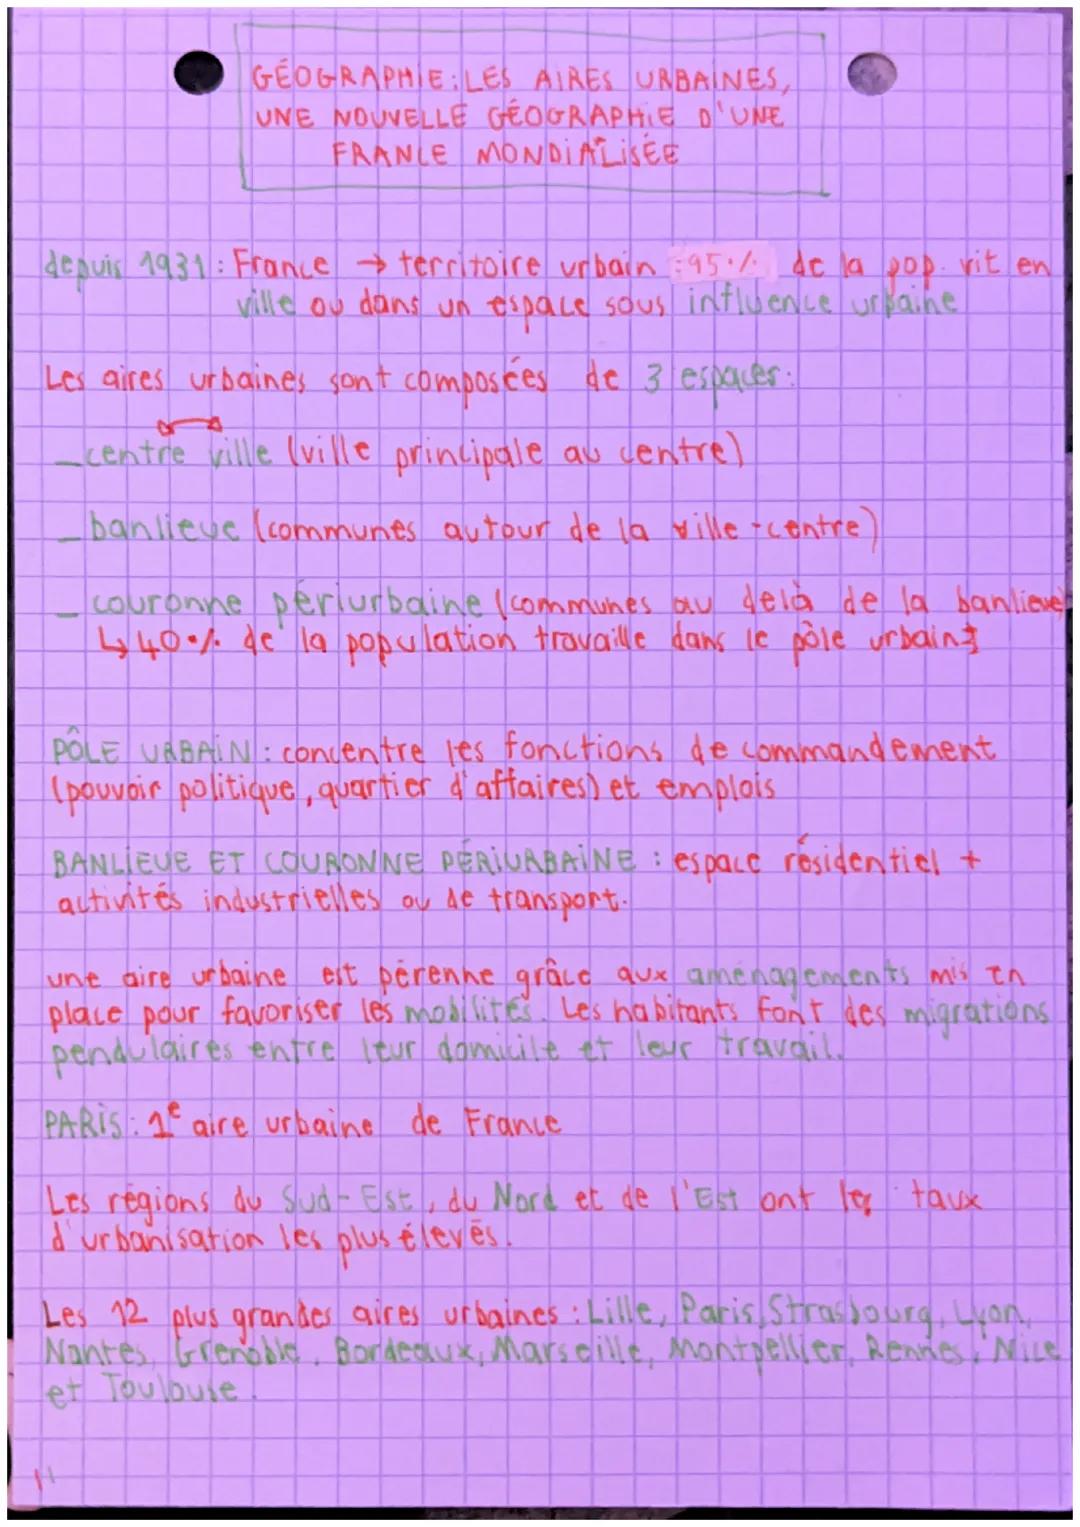 GÉOGRAPHIE: LES AIRES URBAINES,
UNE NOUVELLE GÉOGRAPHIE D'UNE
FRANCE MONDIALISÉE
depuis 1931: France → territoire urbain : 95% de la pop. vit en
ville ou dans un espace sous influence urbaine
Les aires urbaines sont composées de 3 espaces:
_centre ville (ville principale au centre)
_ banlieue (communes autour de la ville-centre)
_ couronne périurbaine (communes au delà de la banlieue)
↳ 40% de la population travaille dans le pôle urbain
PÔLE URBAIN : concentre les fonctions de commandement
(pouvoir politique, quartier d'affaires) et emplois
BANLIEUE ET COURONNE PÉRIURBAINE : espace résidentiel +
activités industrielles ou de transport.
une aire urbaine est pérenne grâce aux aménagements mis en
place pour favoriser les mobilités. Les habitants font des migrations
pendulaires entre leur domicile et leur travail.
PARIS: 1e aire urbaine de France
Les régions du Sud-Est, du Nord et de l'Est ont les taux
d'urbanisation les plus élevés.
Les 12 plus grandes aires urbaines : Lille, Paris, Strasbourg, Lyon,
Nantes, Grenoble, Bordeaux, Marseille, Montpellier, Rennes, Nice
et Toulouse.